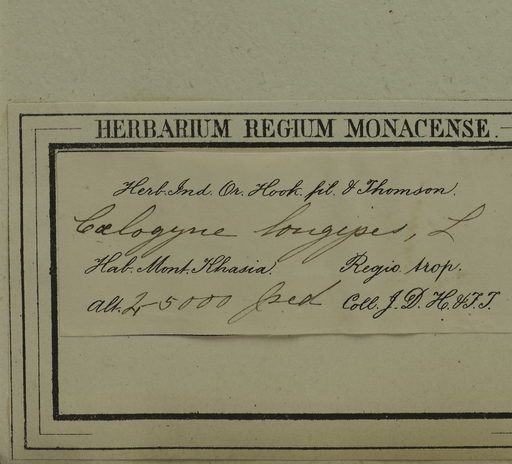 HERBARIUM REGIUM MONACENSE.
Herb. Ind. Or. Hook. fil. & Thomson.
Cœlogyne longipes, L
Hab. Mont. Khasia. Regio trop.
Alt. 4-5000 ped Coll. J. D. H. & T. T.